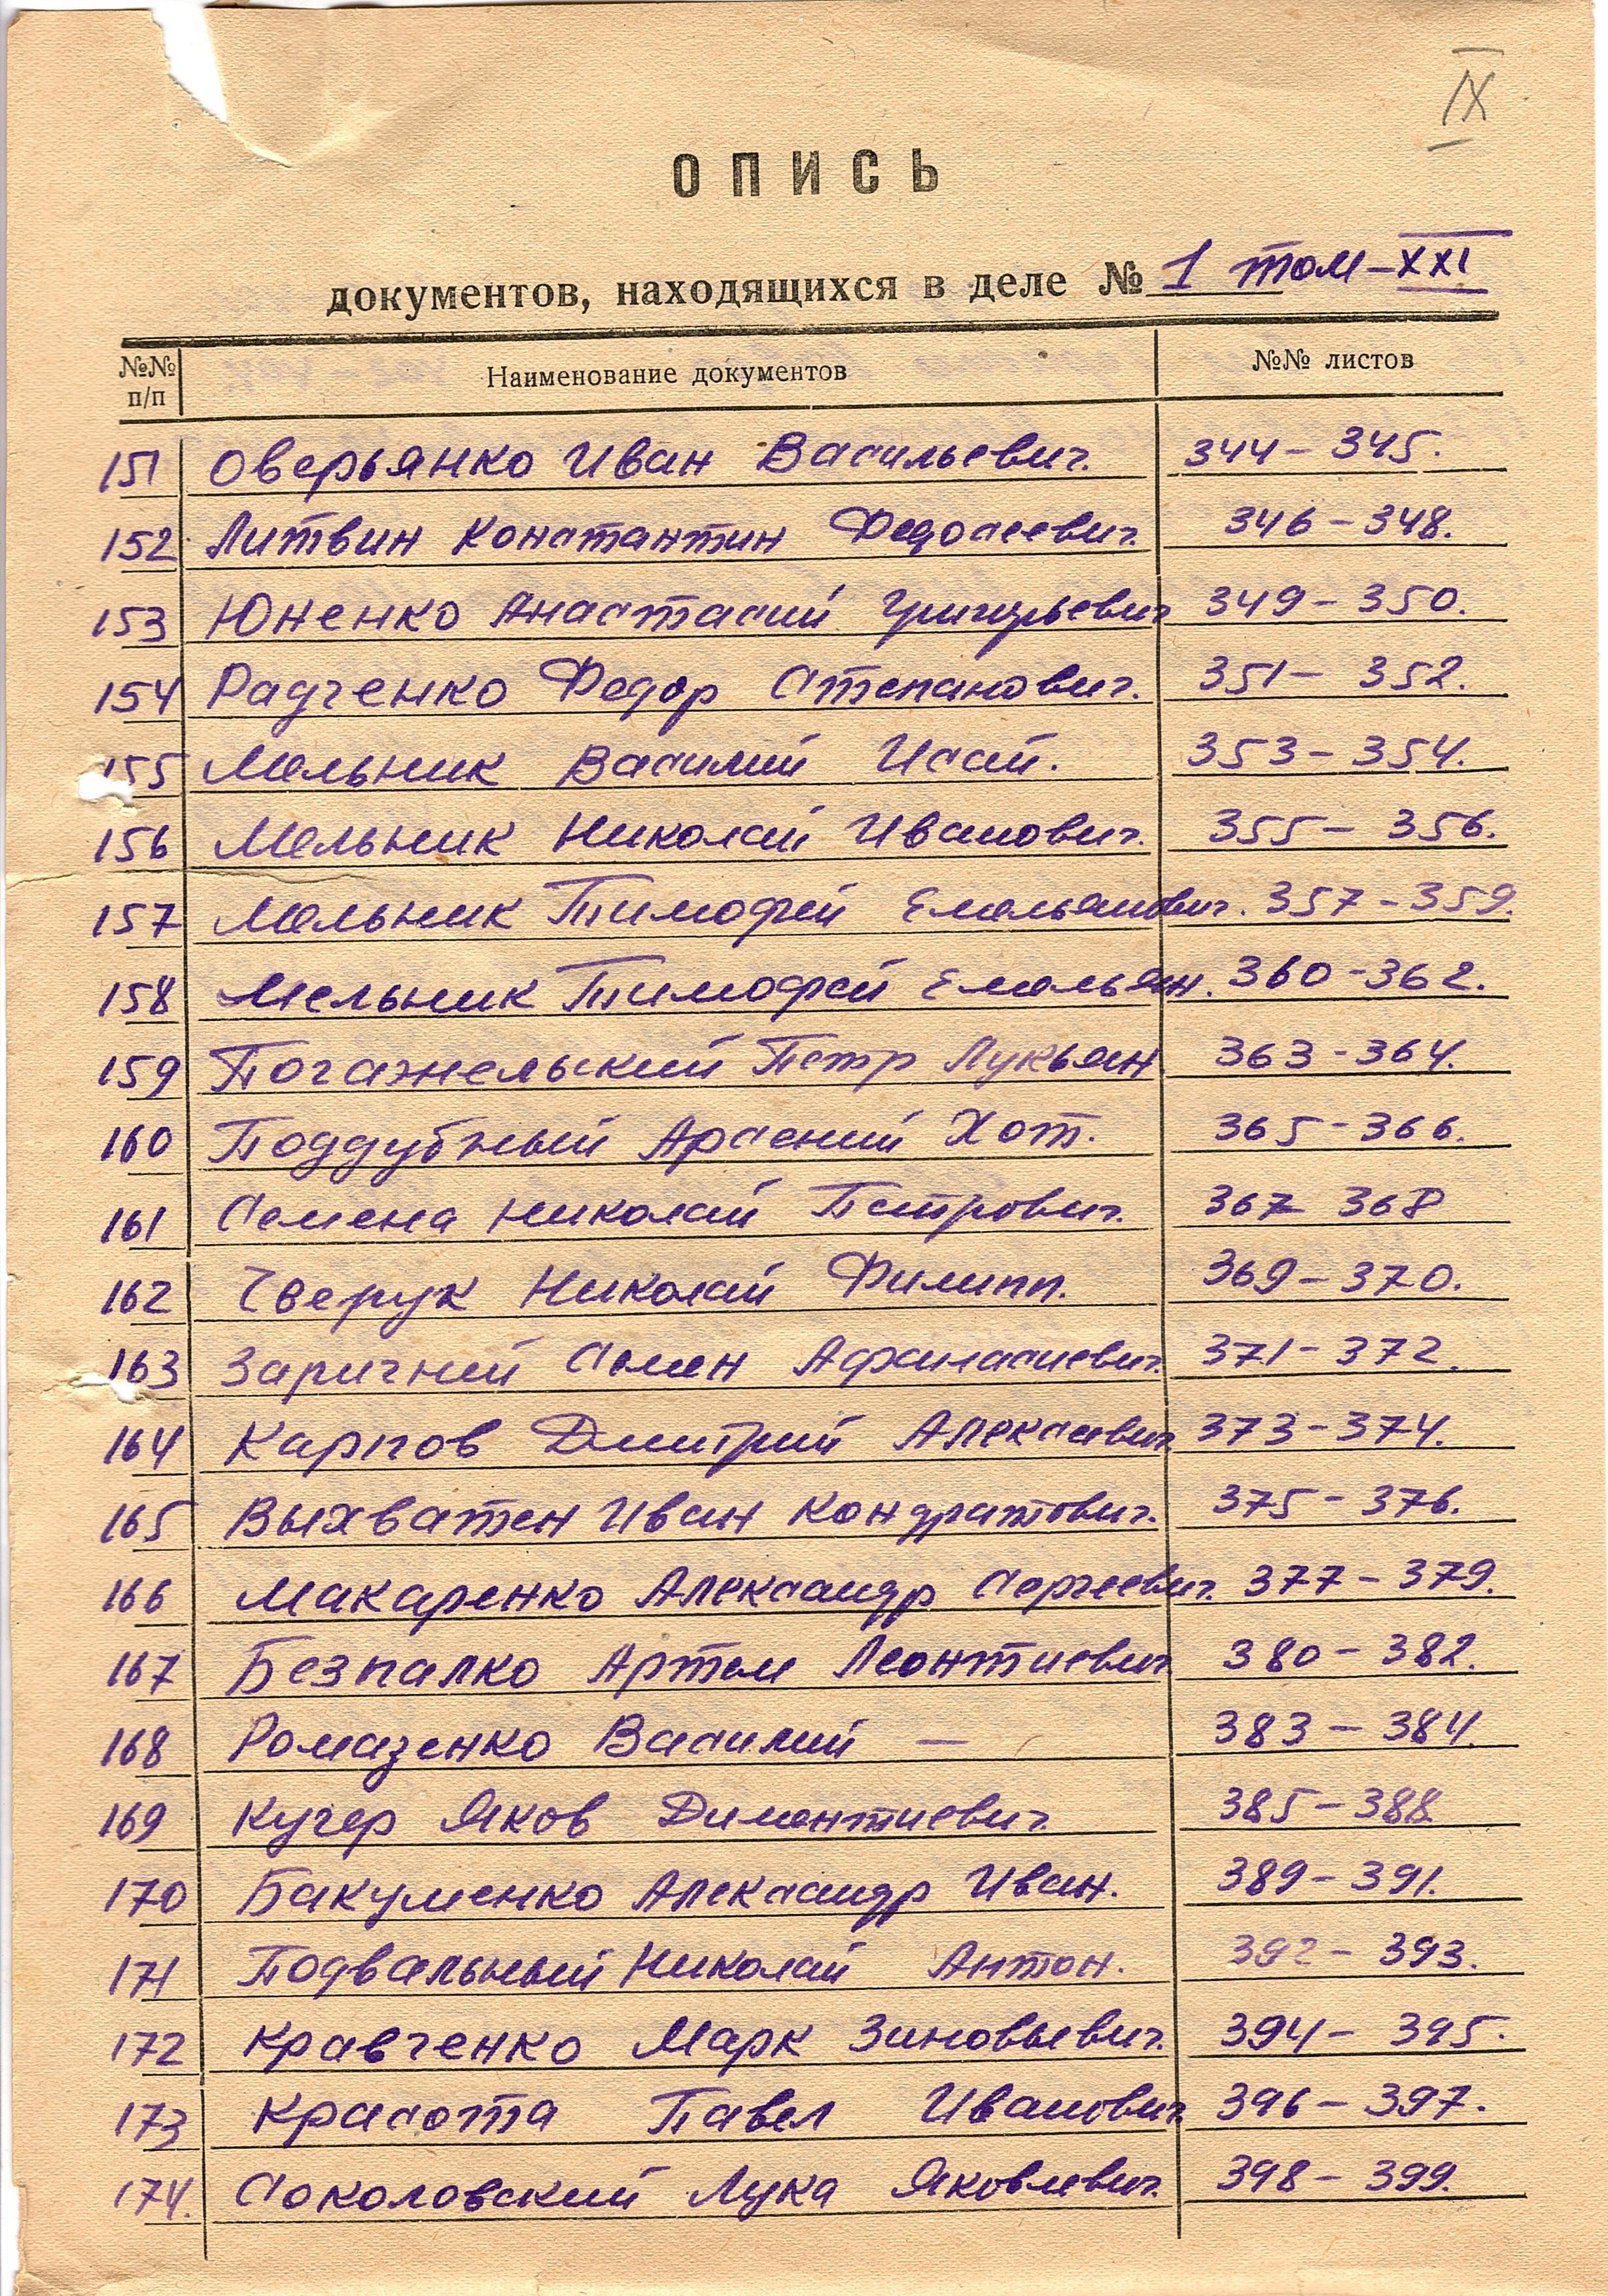 IX
ОПИСЬ
документов, находящихся в деле № 1 том-XXI
№№ п/п Наименование документов №№ листов
151 Оверьянко Иван Васильевич. 344-345.
152 Литвин Константин Федосеевич. 346-348.
153 Юненко Анастасий Григорьевич 349-350.
154 Радченко Федор Степанович. 351-352.
155 Мельник Василий Исай. 353-354.
156 Мельник Николай Иванович. 355-356.
157 Мельник Тимофей Емельянович. 357-359.
158 Мельник Тимофей Емельян. 360-362.
159 Погажельский Петр Лукьян. 363-364.
160 Поддубный Арсений Хот. 365-366.
161 Семена Николай Петрович. 367 368
162 Чверук Николай Филипп. 369-370.
163 Заричний Семен Афанасиевич. 371-372.
164 Карпов Дмитрий Алексеевич 373-374.
165 Выхватен Иван Кондратович. 375-376.
166 Макаренко Александр Сергеевич. 377-379.
167 Безпалко Артем Леонтиевич 380-382.
168 Ромазенко Василий — 383-384.
169 Кучер Яков Диментиевич 385-388
170 Бакуменко Александр Иван. 389-391.
171 Подвальный Николай Антон. 392-393.
172 Кравченко Марк Зиновьевич. 394-395.
173 Красота Павел Иванович 396-397.
174. Соколовский Лука Яковлевич. 398-399.